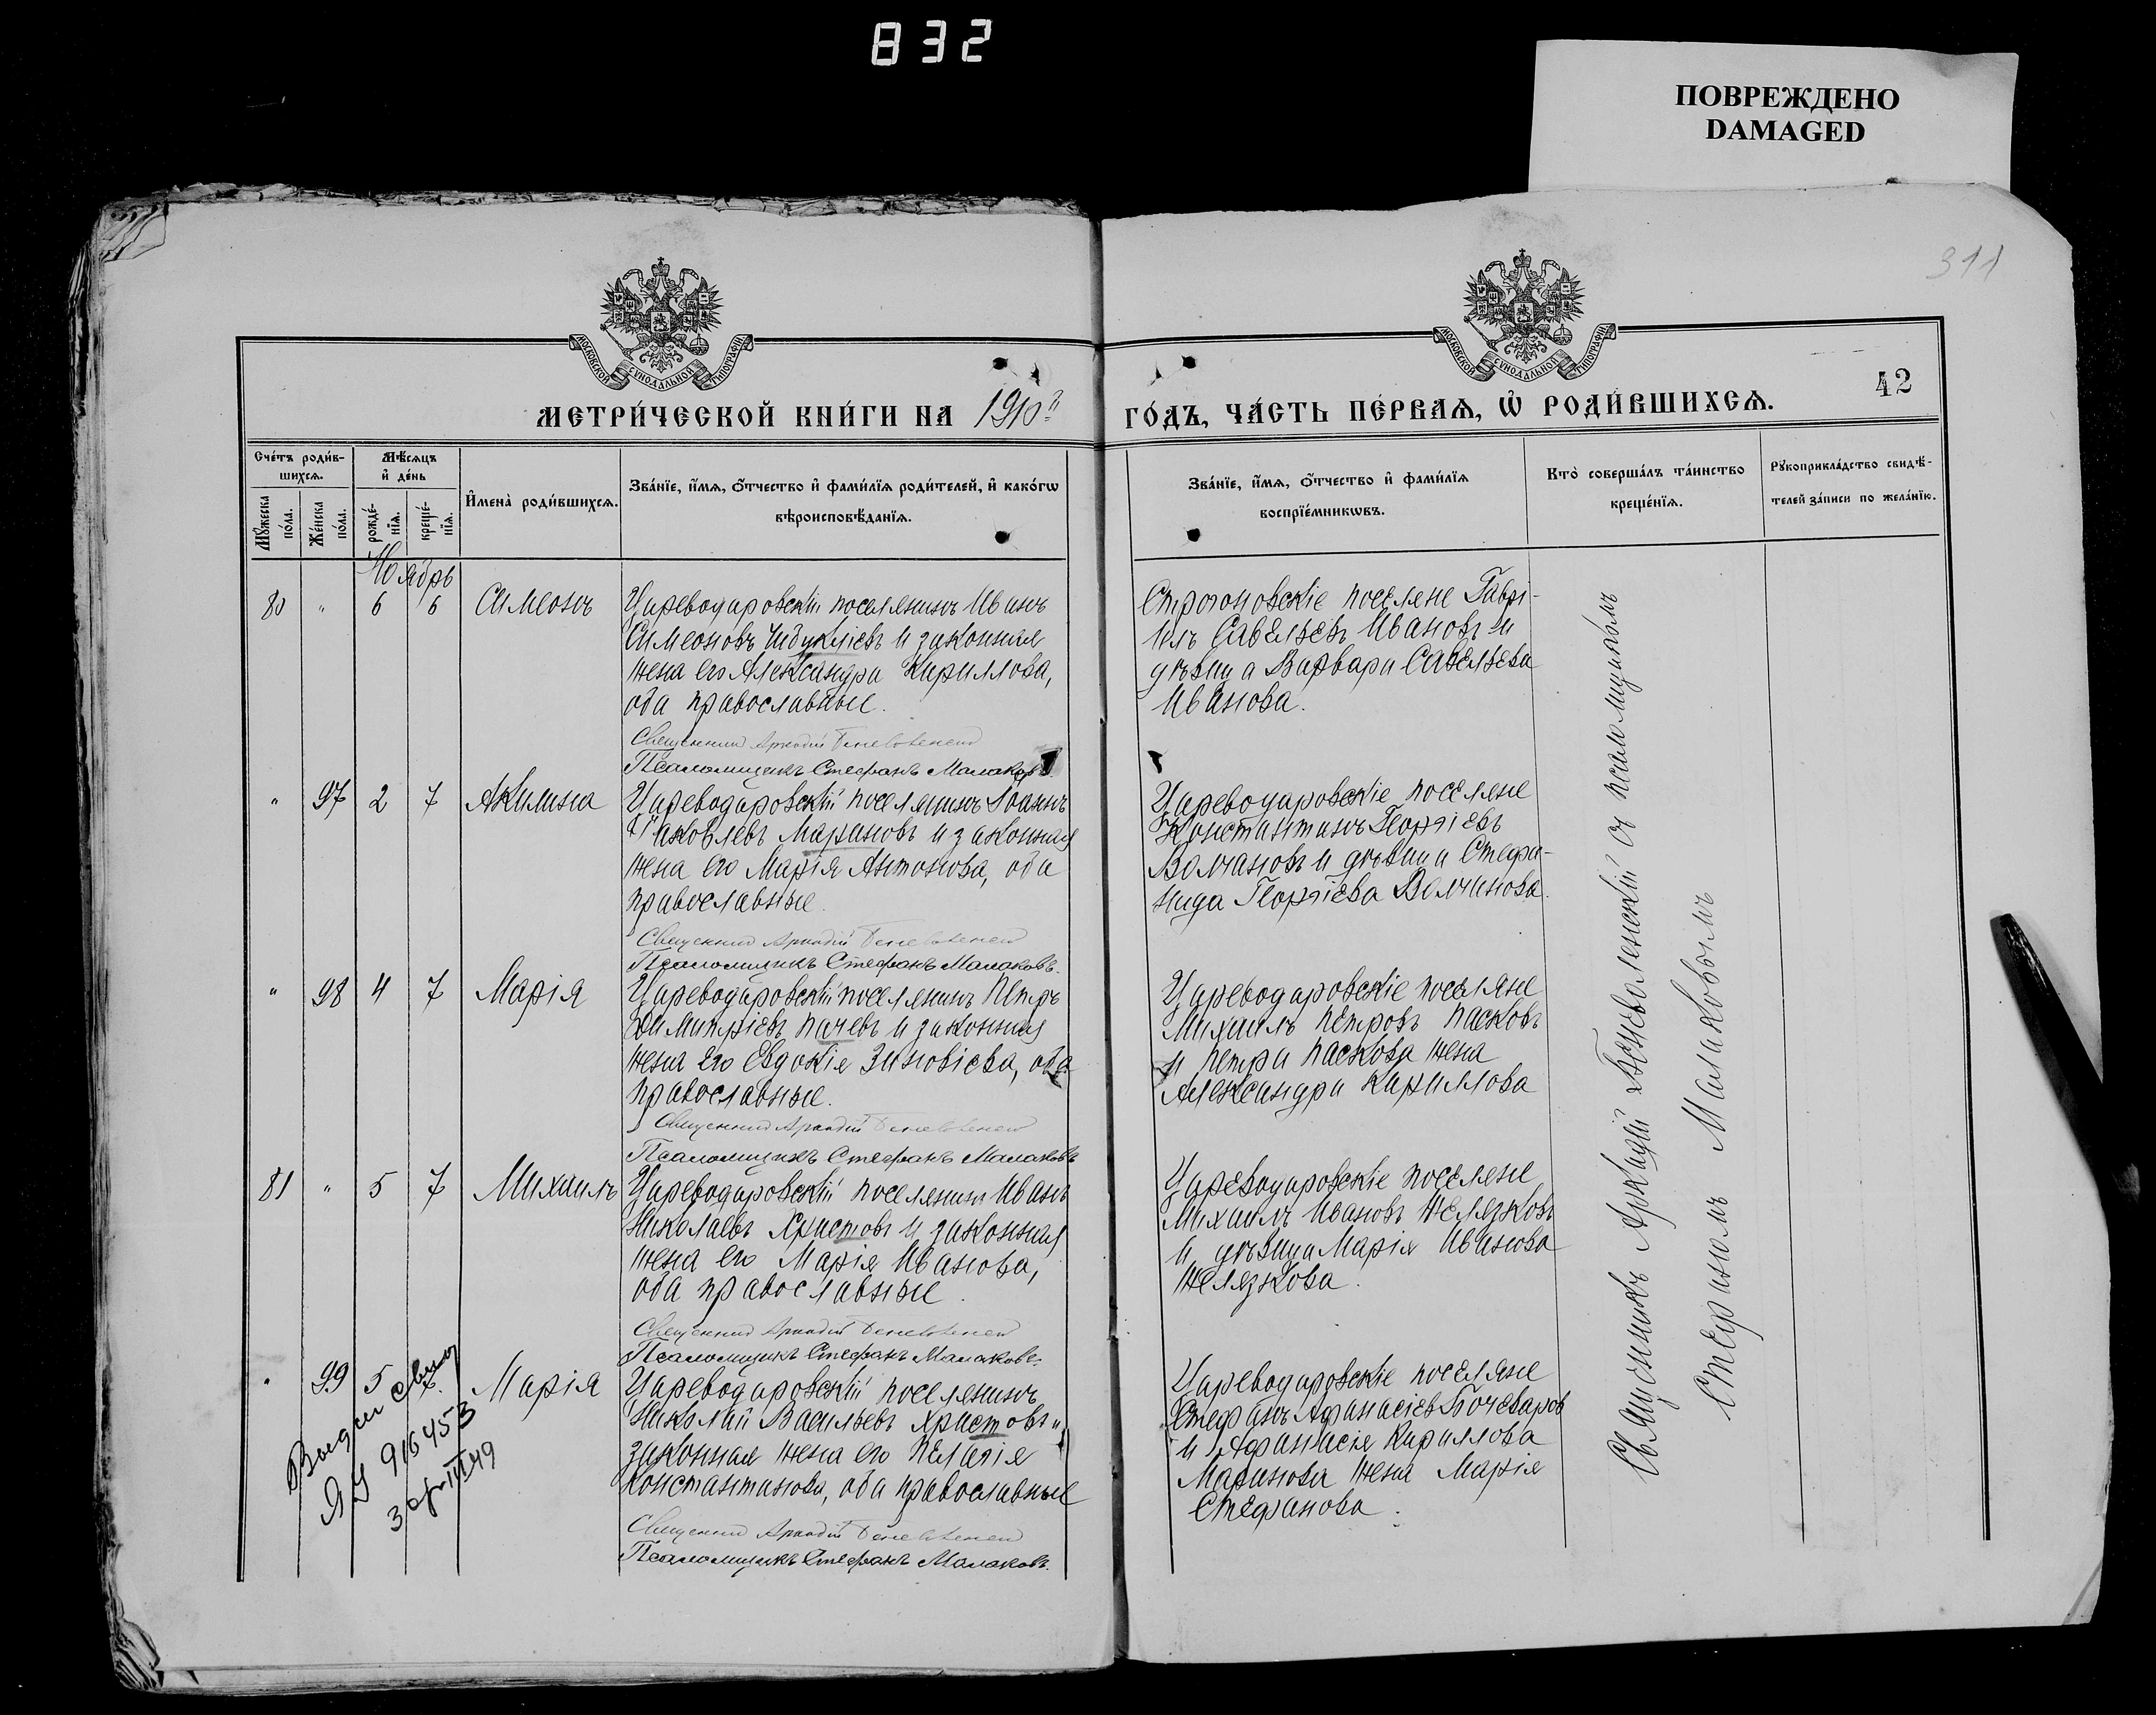 832
ПОВРЕЖДЕНО
DAMAGED
311
МОСКОВСКОЙ СѴНОДАЛЬНОЙ ТИПОГРАФІИ
МОСКОВСКОЙ СѴНОДАЛЬНОЙ ТИПОГРАФІИ
42
МЕТРИ́ЧЕСКОЙ КНИ́ГИ НА 1910й ГО́ДЪ, ЧА́СТЬ ПЕ́РВАѦ, Ѡ҆ РОДИ́ВШИХСѦ.
Сче́тъ роди́в-
шихсѧ.
Мꙋ́жеска по́ла.
Же́нска по́ла.
Мѣ́сѧцъ
и҆ де́нь
рожде́-
нїѧ.
креще́-
нїѧ.
И҆мена̀ роди́вшихсѧ.
Зва́нїе, и҆́мѧ, ѻ҆́тчество и҆ фами́лїѧ роди́телей, и҆ како́гѡ
вѣроисповѣ́данїѧ.
Зва́нїе, и҆́мѧ, ѻ҆́тчество и҆ фами́лїѧ
воспрїе́мникѡвъ.
Кто̀ соверша́лъ та́инство
креще́нїѧ.
Рꙋкоприкла́дство свидѣ́-
телей за́писи по жела́нїю.
Ноябрь
80 " 6 6 Симеонъ
Цареводаровскій поселянинъ Иванъ
Симеоновъ и законная
жена его Александра Кириллова,
оба православные.
Священникъ Аркадій Беневоленскій
Псаломщикъ Стефанъ Малаковъ.
Строгоновскіе поселяне Гаврі-
илъ Савельевъ Ивановъ и
дѣвица Варвара Савельева
Иванова.
" 97 2 7 Акилина
Цареводаровскій поселянинъ Іоаннъ
Іаковлевъ Мариновъ и законная
жена его Марія Антонова, оба
православные.
Священникъ Аркадій Беневоленскій
Псаломщикъ Стефанъ Малаковъ.
Цареводаровскіе поселяне
Константинъ Георгіевъ
Волчановъ и дѣвица Стефа-
нида Георгіева Волчанова.
" 98 4 7 Марія
Цареводаровскій поселянинъ Петръ
Димитріевъ Пачевъ и законная
жена его Евдокія Зиновіева, оба
православные.
Священникъ Аркадій Беневоленскій
Псаломщикъ Стефанъ Малаковъ
Цареводаровскіе поселяне
Михаилъ Петровъ Пасковъ
и Петра Паскова жена
Александра Кириллова
81 " 5 7 Михаилъ
Цареводаровскій поселянинъ Иванъ
Николаевъ Христовъ и законная
жена его Марія Иванова,
оба православные.
Священникъ Аркадій Беневоленскій
Псаломщикъ Стефанъ Малаковъ.
Цареводаровскіе поселяне
Михаилъ Ивановъ Желязковъ
и дѣвица Марія Иванова
Желязкова.
" 99 5 7. Марія
Цареводаровскій поселянинъ
Николай Васильевъ Христовъ и
законная жена его Пелагія
Константинова, оба православные
Священникъ Аркадій Беневоленскій
Псаломщикъ Стефанъ Малаковъ.
Цареводаровскіе поселяне
Стефанъ Афанасіевъ Бочеваров
и Афанасія Кириллова
Маринова жена Марія
Стефанова.
Выдан
916453
49
Священникъ Аркадій Беневоленскій съ псаломщикомъ
Стефаномъ Малаковымъ